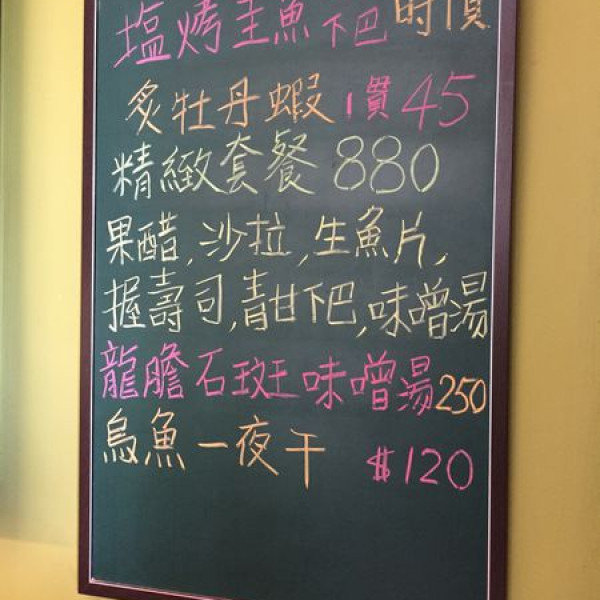 塩烤圭魚下巴 時價
炙牡丹蝦 1貫 45
精緻套餐 880
果醋,沙拉,生魚片,
握壽司,青甘下巴,味噌湯
龍膽石斑味噌湯250
烏魚一夜干 $120